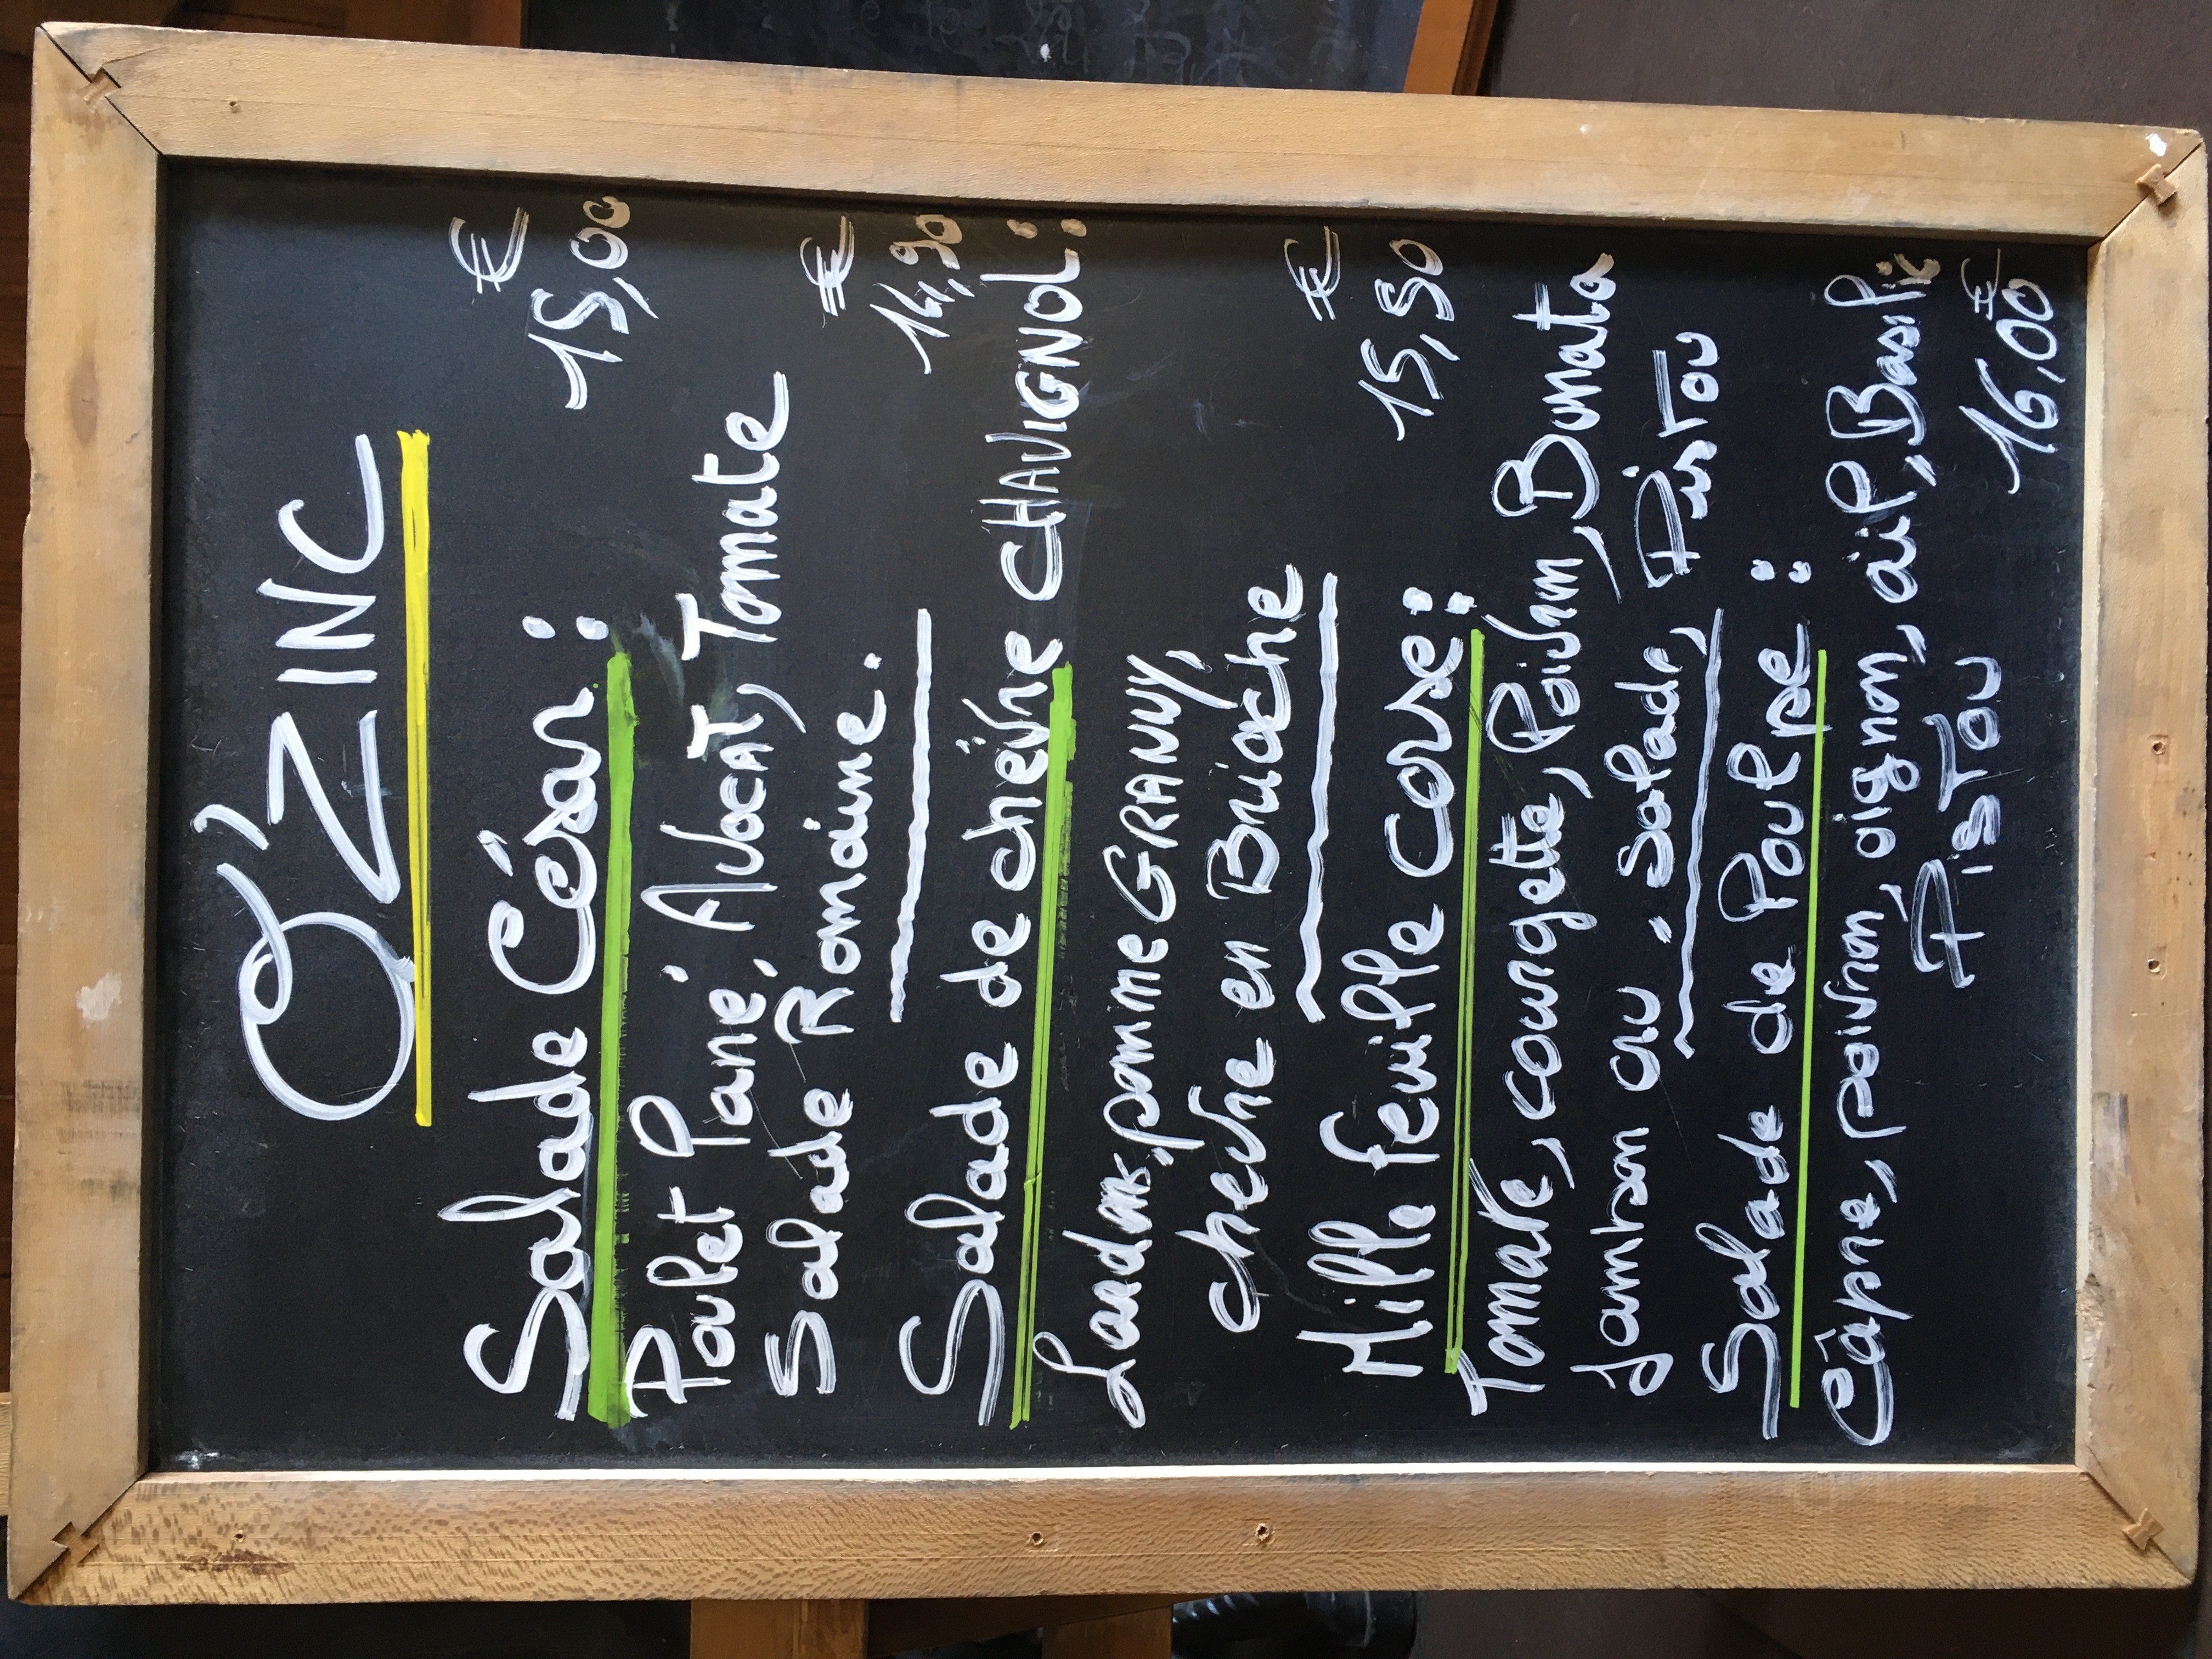 O'ZINC
Salade César: €
15,00
Poulet Pané, Avocat, Tomate
Salade Romaine. €
14,90
Salade de chèvre CHAVIGNOL:
Lardons, pomme GRANNY,
chèvre en Brioche €
15,50
Mille feuille Corse:
Tomate, courgette, Poivron, Burrata
Jambon cru. salade, Pistou
Salade de Poulpe:
Câpre, poivron, oignon, ail, Basilic
Pistou €
16,00